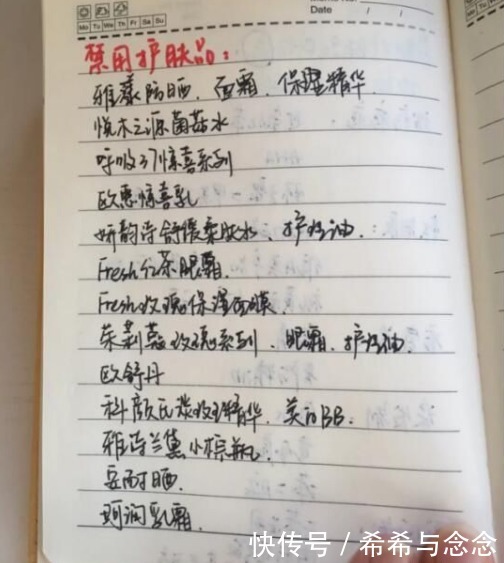 Mo Tu We Th Fr Sa Su
Date / /
禁用护肤品:
雅漾防晒、面霜、保湿精华
悦木之源菌菇水
呼吸小惊喜系列
欧惠惊喜乳
妍韵诗舒缓柔肤水、护理油
Fresh红茶眼霜
Fresh玫瑰保湿面膜
茱莉蔻玫瑰系列、眼霜、护理油
欧舒丹
科颜氏玫瑰精华、美白BB
雅诗兰黛小棕瓶
安耐晒
珂润乳霜
快传号 / 希希与念念